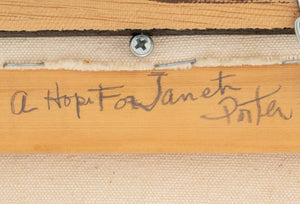 A Hope For Janeth
Porter